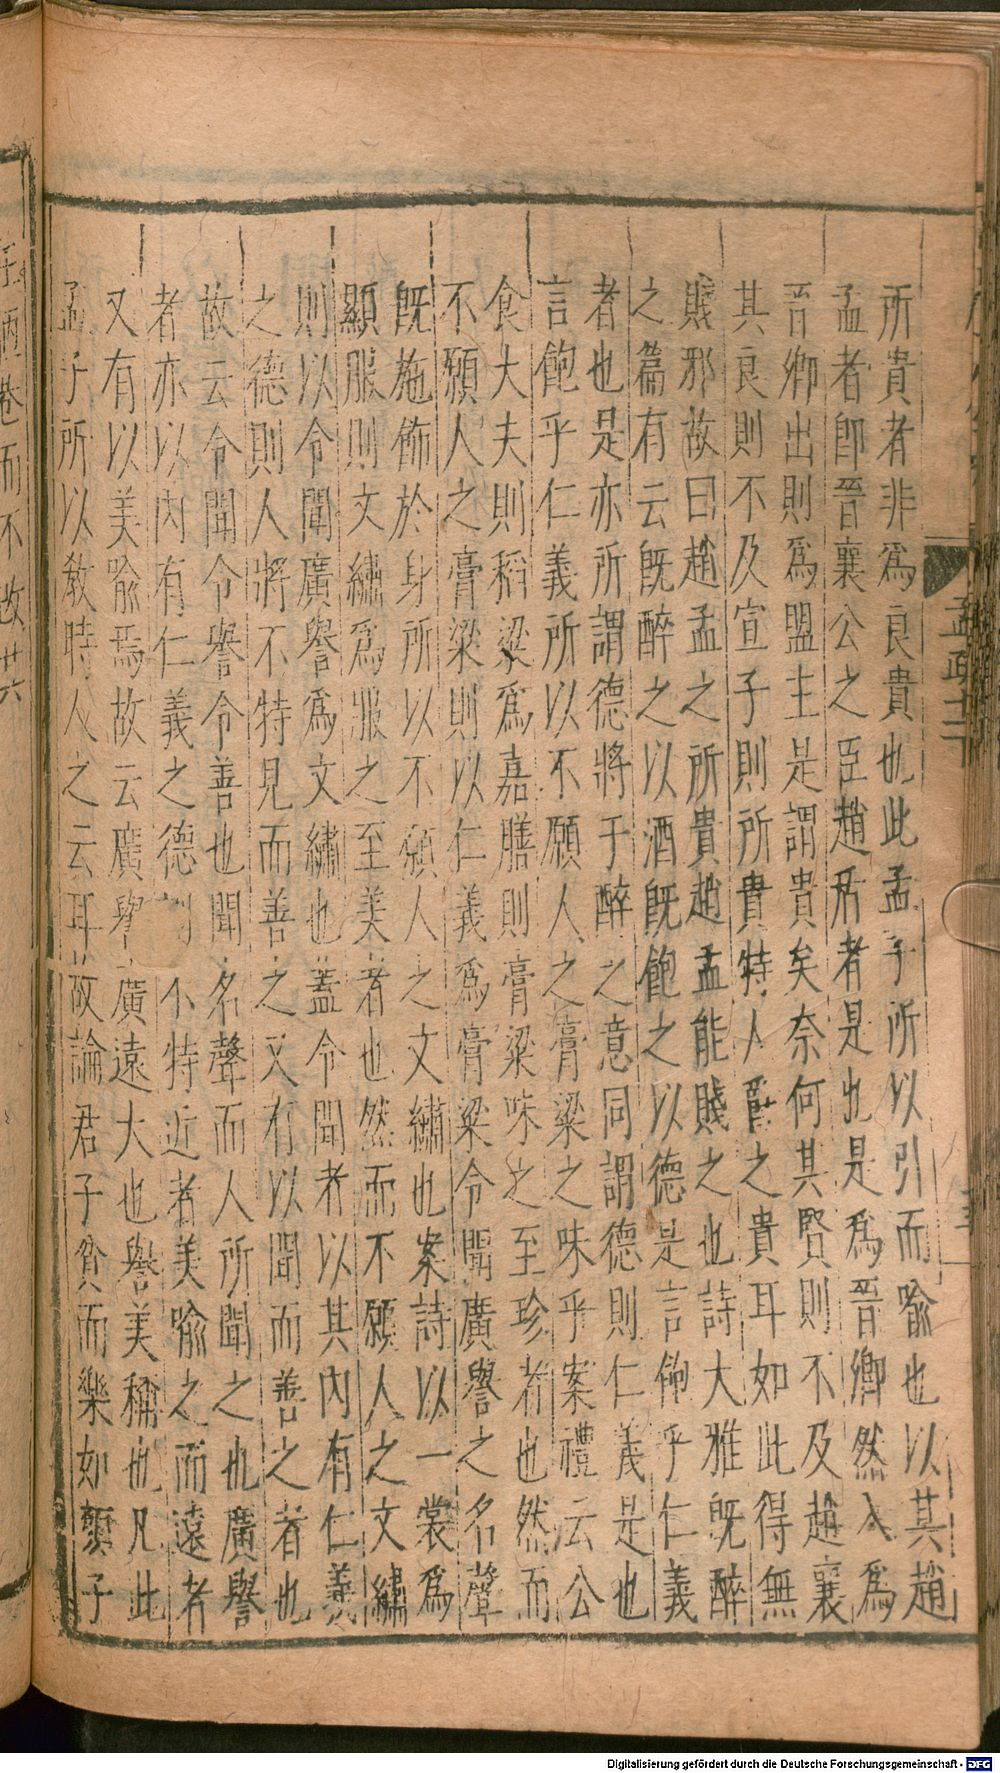 所貴者非爲良貴也此孟子所以引而喻也以其趙
孟者即晉襄公之臣趙盾者是也是爲晉卿然入爲
晉卿出則爲盟主是謂貴矣奈何其賢則不及趙襄
其良則不及宣子則所貴特人爵之貴耳如此得無
賤邪故曰趙孟之所貴趙孟能賤之也詩大雅旣醉
之篇有云旣醉之以酒旣飽之以德是言飽乎仁義
者也是亦所謂德將于醉之意同謂德則仁義是也
言飽乎仁義所以不願人之膏粱之味乎案禮云公
食大夫則稻粱爲嘉膳則膏粱味之至珍者也然而
不願人之膏粱則以仁義爲膏粱令聞廣譽之名聲
旣施飾於身所以不願人之文繡也案詩以一裳爲
顯服則文繡爲服之至美者也然而不願人之文繡
則以令聞廣譽爲文繡也蓋令聞者以其內有仁義
之德則人將不特見而善之又有以聞而善之者也
故云令聞令譽令善也聞名聲而人所聞之也廣譽
者亦以內有仁義之德則不特近者美喻之而遠者
又有以美喻焉故云廣譽廣遠大也譽美稱也凡此
孟子所以教時人之云耳故論君子貧而樂如顏子
孟疏十一下
巷而不改 廿六
Digitalisierung gefördert durch die Deutsche Forschungsgemeinschaft - DFG